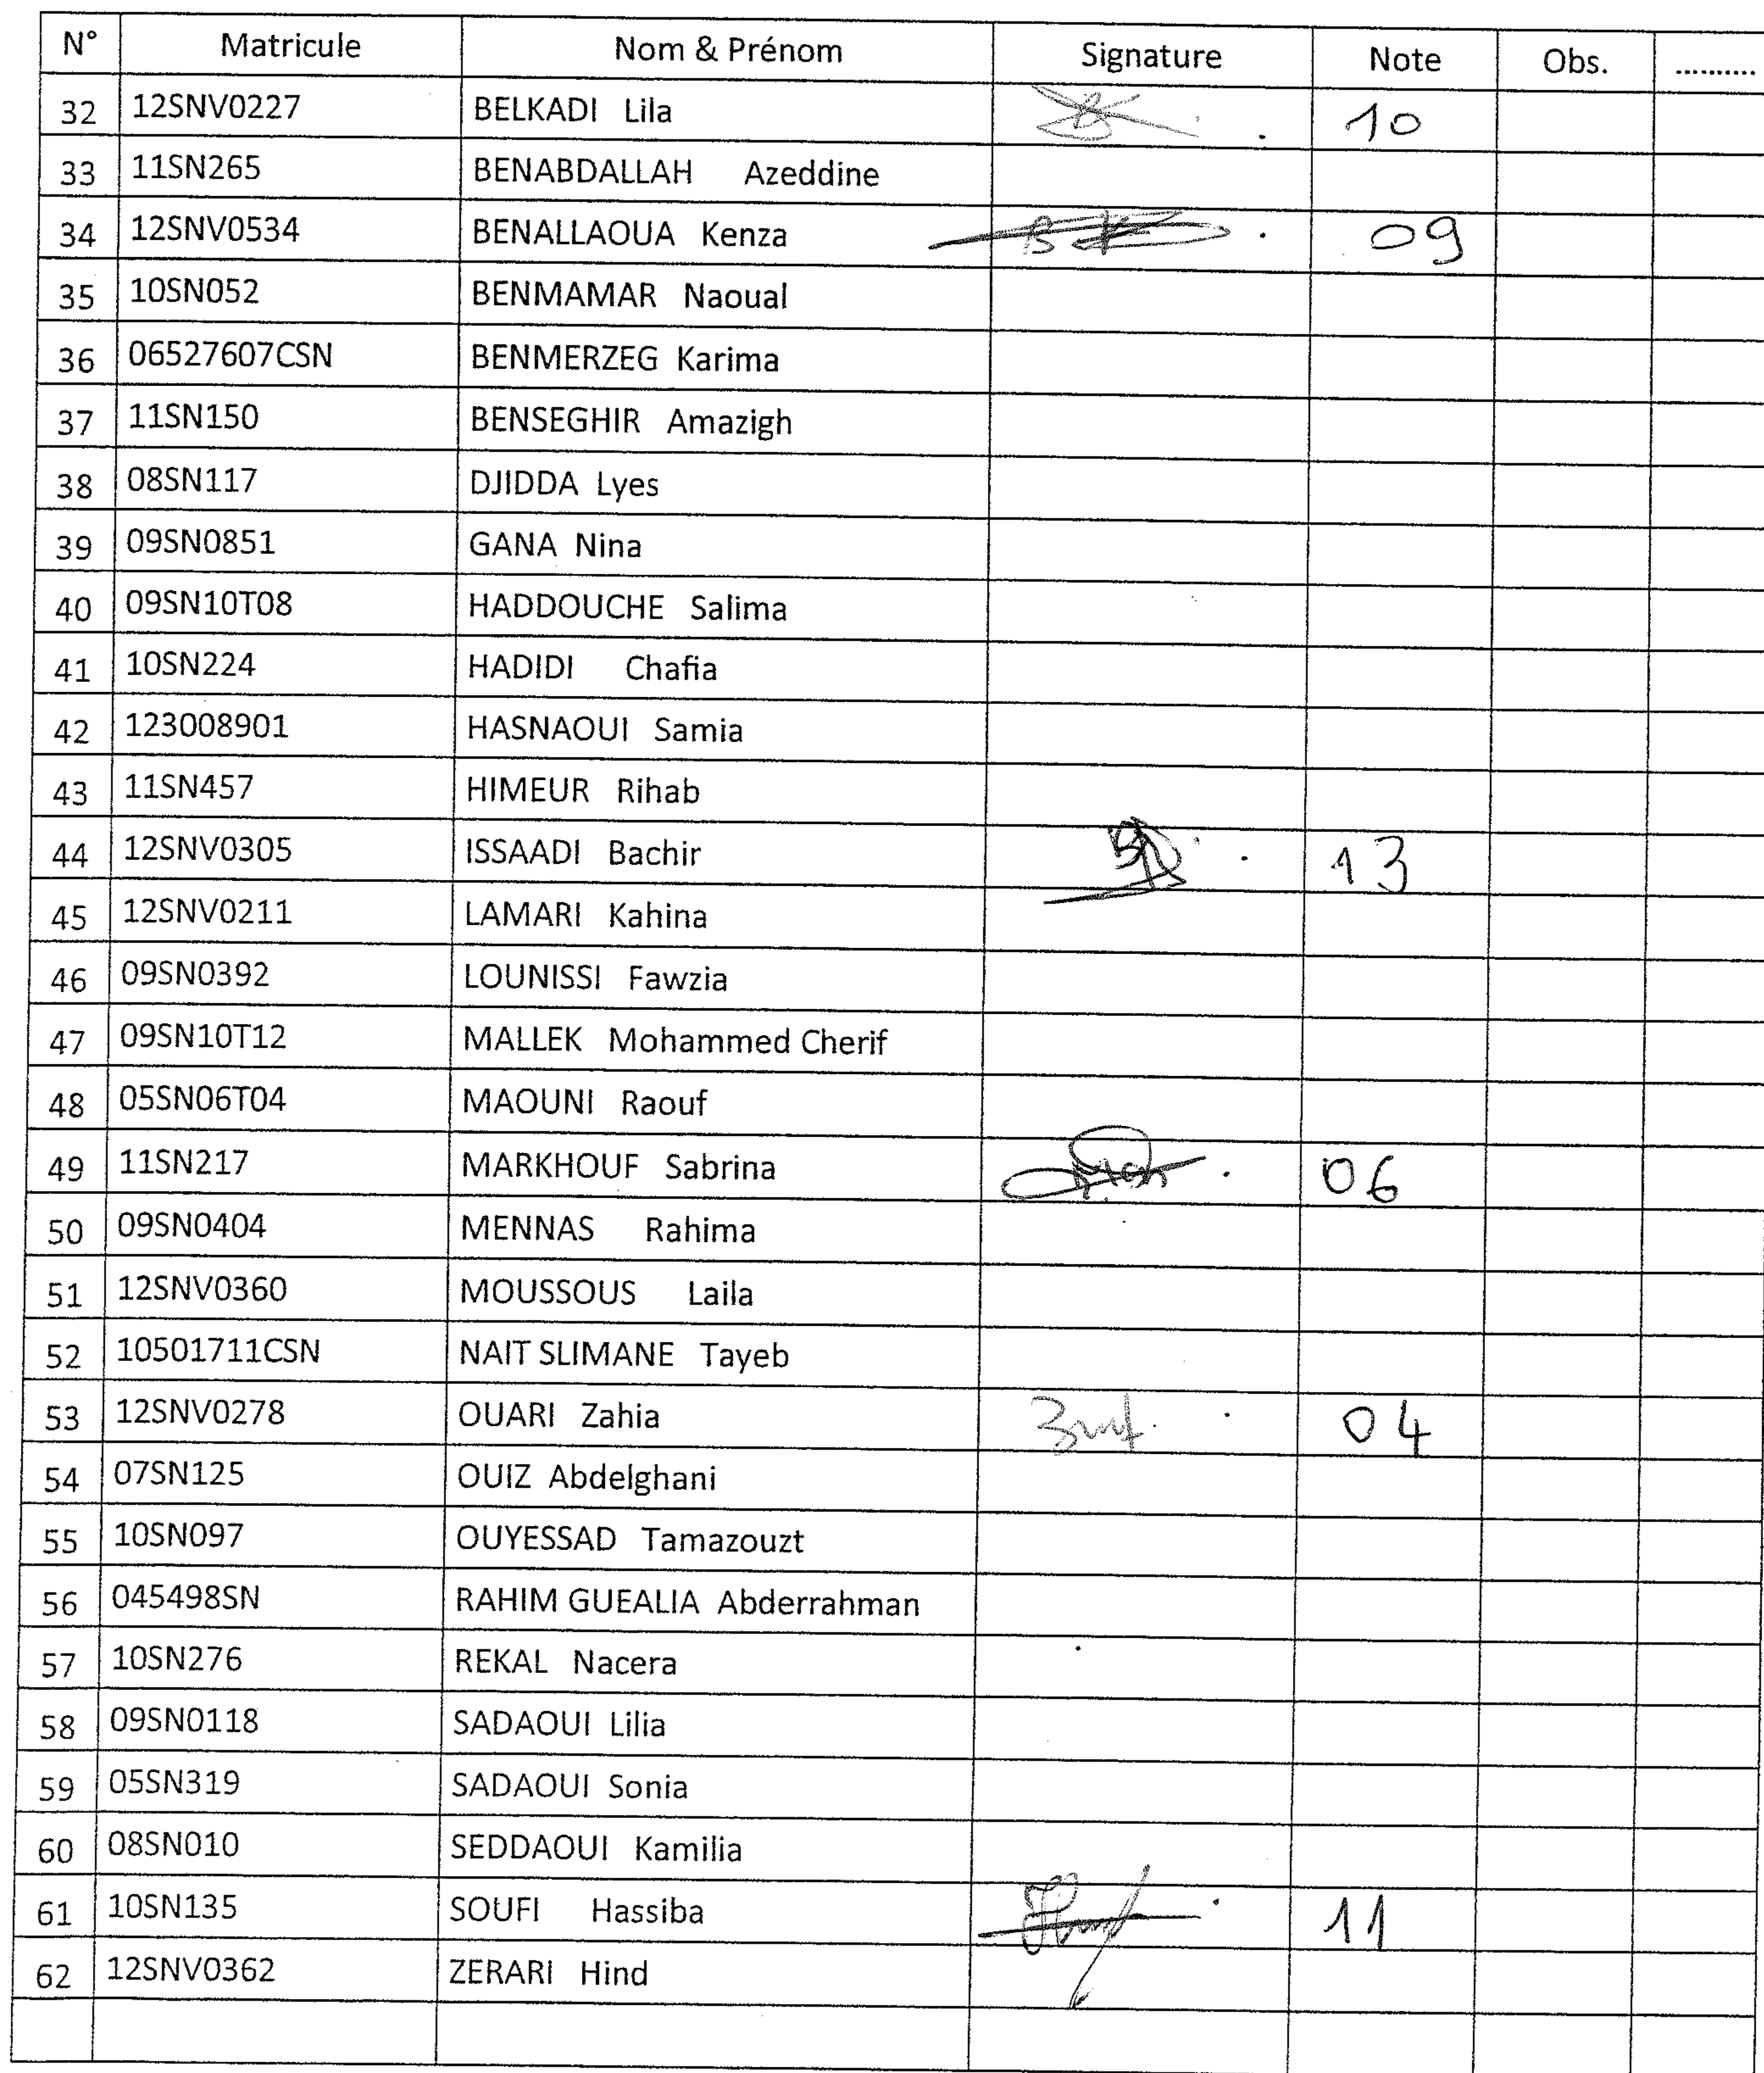 N° Matricule Nom & Prénom Signature Note Obs. ..........
32 12SNV0227 BELKADI Lila 10
33 11SN265 BENABDALLAH Azeddine
34 12SNV0534 BENALLAOUA Kenza 09
35 10SN052 BENMAMAR Naoual
36 06527607CSN BENMERZEG Karima
37 11SN150 BENSEGHIR Amazigh
38 08SN117 DJIDDA Lyes
39 09SN0851 GANA Nina
40 09SN10T08 HADDOUCHE Salima
41 10SN224 HADIDI Chafia
42 123008901 HASNAOUI Samia
43 11SN457 HIMEUR Rihab
44 12SNV0305 ISSAADI Bachir 13
45 12SNV0211 LAMARI Kahina
46 09SN0392 LOUNISSI Fawzia
47 09SN10T12 MALLEK Mohammed Cherif
48 05SN06T04 MAOUNI Raouf
49 11SN217 MARKHOUF Sabrina 06
50 09SN0404 MENNAS Rahima
51 12SNV0360 MOUSSOUS Laila
52 10501711CSN NAIT SLIMANE Tayeb
53 12SNV0278 OUARI Zahia 04
54 07SN125 OUIZ Abdelghani
55 10SN097 OUYESSAD Tamazouzt
56 045498SN RAHIM GUEALIA Abderrahman
57 10SN276 REKAL Nacera
58 09SN0118 SADAOUI Lilia
59 05SN319 SADAOUI Sonia
60 08SN010 SEDDAOUI Kamilia
61 10SN135 SOUFI Hassiba 11
62 12SNV0362 ZERARI Hind